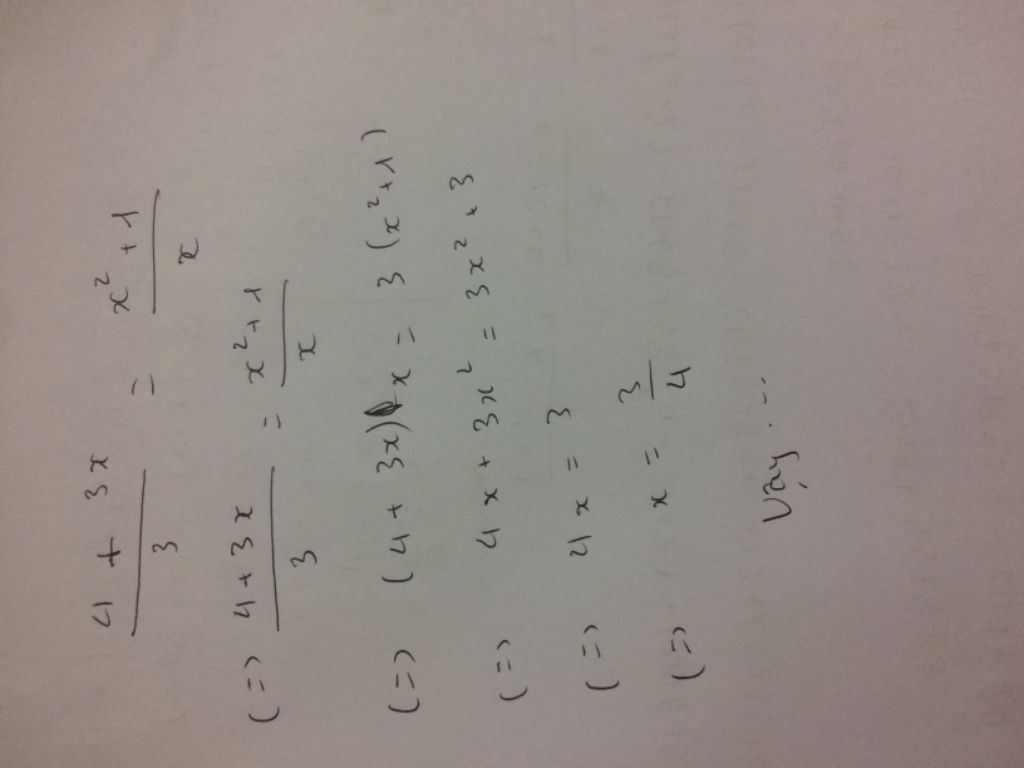 (4 + 3x)/3 = (x² + 1)/x
(=) (4 + 3x)/3 = (x² + 1)/x
(=) (4 + 3x) x = 3 (x² + 1)
(=) 4x + 3x² = 3x² + 3
(=) 4x = 3
(=) x = 3/4
Vậy ...